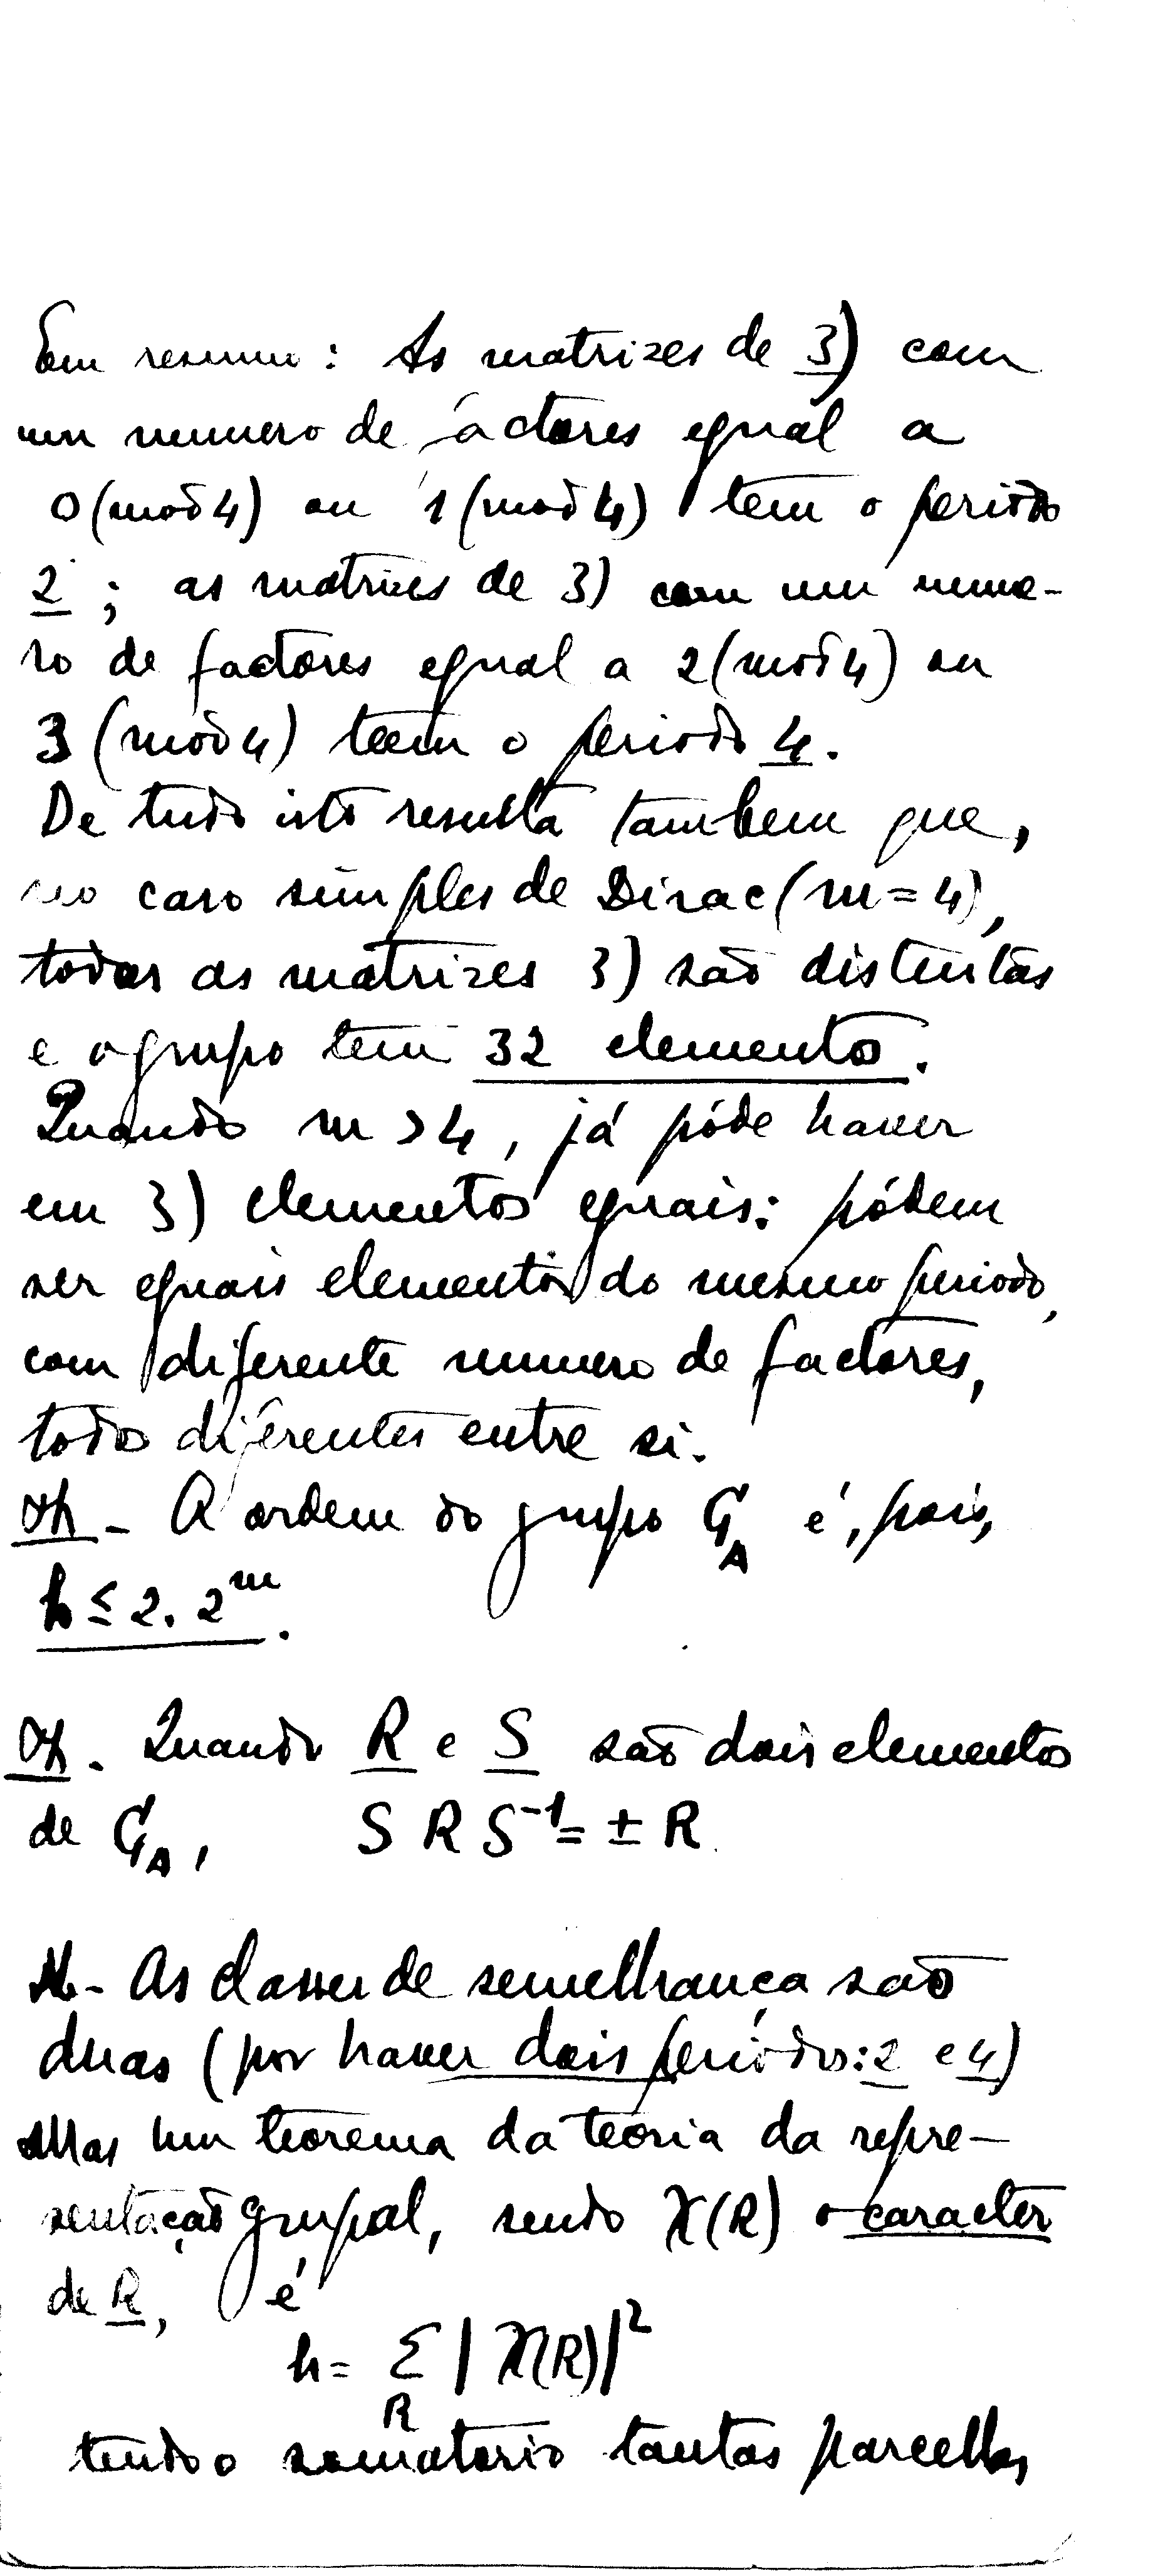 Em resumo: As matrizes de 3) com
um numero de factores egual a
0 (mod 4) ou 1 (mod 4) tem o periodo
2 ; as matrizes de 3) com um nume-
ro de factores egual a 2 (mod 4) ou
3 (mod 4) teem o periodo 4.
De tudo isto resulta tambem que,
no caso simples de Dirac (m = 4),
todas as matrizes 3) são distintas
e o grupo tem 32 elementos.
Quando m > 4, já póde haver
em 3) elementos eguais: pódem
ser eguais elementos do mesmo periodo,
com diferente numero de factores,
todos diferentes entre si.
- A ordem do grupo G_A é, pois,
h ≤ 2. 2^m.
. Quando R e S são dois elementos
de G_A, S R S^-1 = ± R
- As classes de semelhança são
duas (por haver dois periódos: 2 e 4)
Mas um teorema da teoria da repre-
sentação grupal, sendo χ(R) o caracter
de R, é
h = Σ | χ(R)|^2
R
tendo o somatorio tantas parcellas